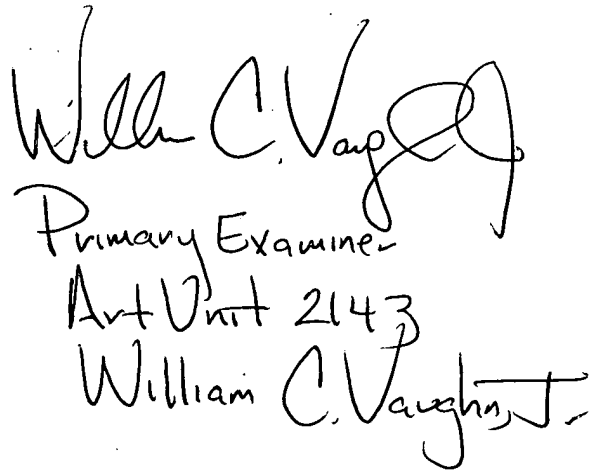 William C. Vaughn Jr.
Primary Examiner
Art Unit 2143
William C. Vaughn, Jr.